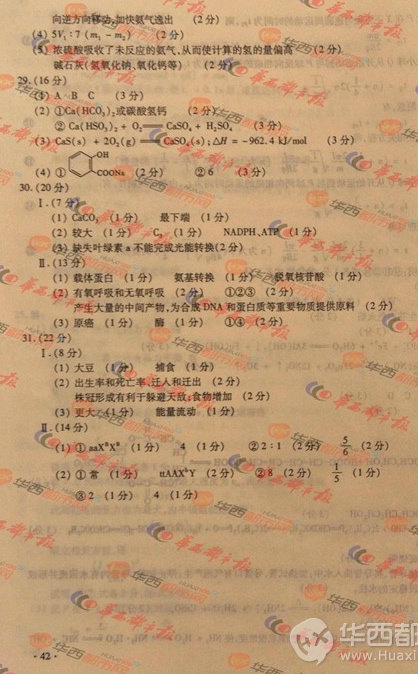 向逆方向移动,加快氨气逸出 (2分)
(4) 5V₁ : 7 (m₁ − m₂) (2分)
(5) 浓硫酸吸收了未反应的氨气,从而使计算的氢的量偏高 (2分)
碱石灰(氢氧化钠、氧化钙等) (2分)
29.(16分)
(1) A B C (3分)
(2) ①Ca(HCO₃)₂或碳酸氢钙 (2分)
② Ca(HSO₃)₂ + O₂ ══ CaSO₄ + H₂SO₄ (3分)
(3) CaS(s) + 2O₂(g) ══ CaSO₄(s);ΔH = −962.4 kJ/mol (3分)
(4) ① OH COONa (2分) ② 6 (3分)
30.(20分)
Ⅰ.(7分)
(1) CaCO₃ (1分) 最下端 (1分)
(2) 较大 (1分) C₅ (1分) NADPH、ATP (1分)
(3) 缺失叶绿素a不能完成光能转换(2分)
Ⅱ.(13分)
(1) 载体蛋白 (1分) 氨基转换 (1分) 脱氧核苷酸 (1分)
(2) 有氧呼吸和无氧呼吸 (2分) ①②③ (2分)
产生大量的中间产物,为合成DNA和蛋白质等重要物质提供原料 (2分)
(3) 原癌 (1分) 酶 (1分) ①④ (2分)
31.(22分)
Ⅰ.(8分)
(1) 大豆 (1分) 捕食 (1分)
(2) 出生率和死亡率、迁入和迁出 (2分)
株冠形成有利于躲避天敌;食物增加 (2分)
(3) 更大 (1分) 能量流动 (1分)
Ⅱ.(14分)
(1) ① aaXᴮXᴮ (1分) 4 (1分) ② 2 : 1 (2分) 5/6 (2分)
(2) ① 常 (1分) ttAAXᵇY (2分) ② 8 (2分) 1/5 (1分)
③ 2 (1分) 4 (1分)
· 42 ·
华西都市报
华西都
www.Huaxi